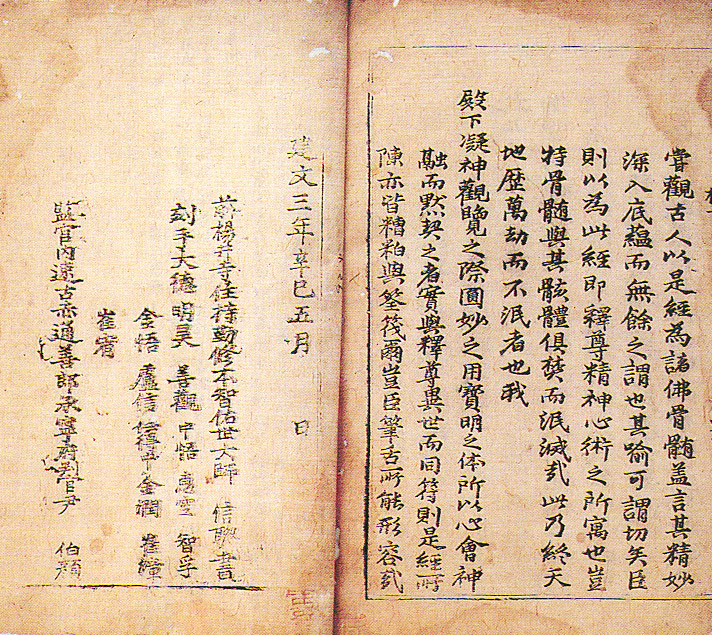 嘗觀古人以是經為諸佛骨髓盖言其精妙
深入底蘊而無餘之謂也其喻可謂切矣臣
則以為此經即釋尊精神心術之所寓也豈
特骨髓與其骸體俱焚而泯滅㢤此乃終天
地歷萬劫而不泯者也我
殿下凝神觀覽之際圓妙之用寶明之体所以心會神
融而默契之者實與釋尊異世而同符則是經所
陳亦皆糟粕與筌筏爾豈臣筆舌所能形容㢤
建文三年辛巳五月 日
前楊等寺住持勤修本智佑世大師 信聰書
刻手大德明昊 善觀 中悟 惠空 智孚
金悟 盧信 金潤 崔
崔宥
監官內速古赤通善郎承寧府判官尹 伯顏